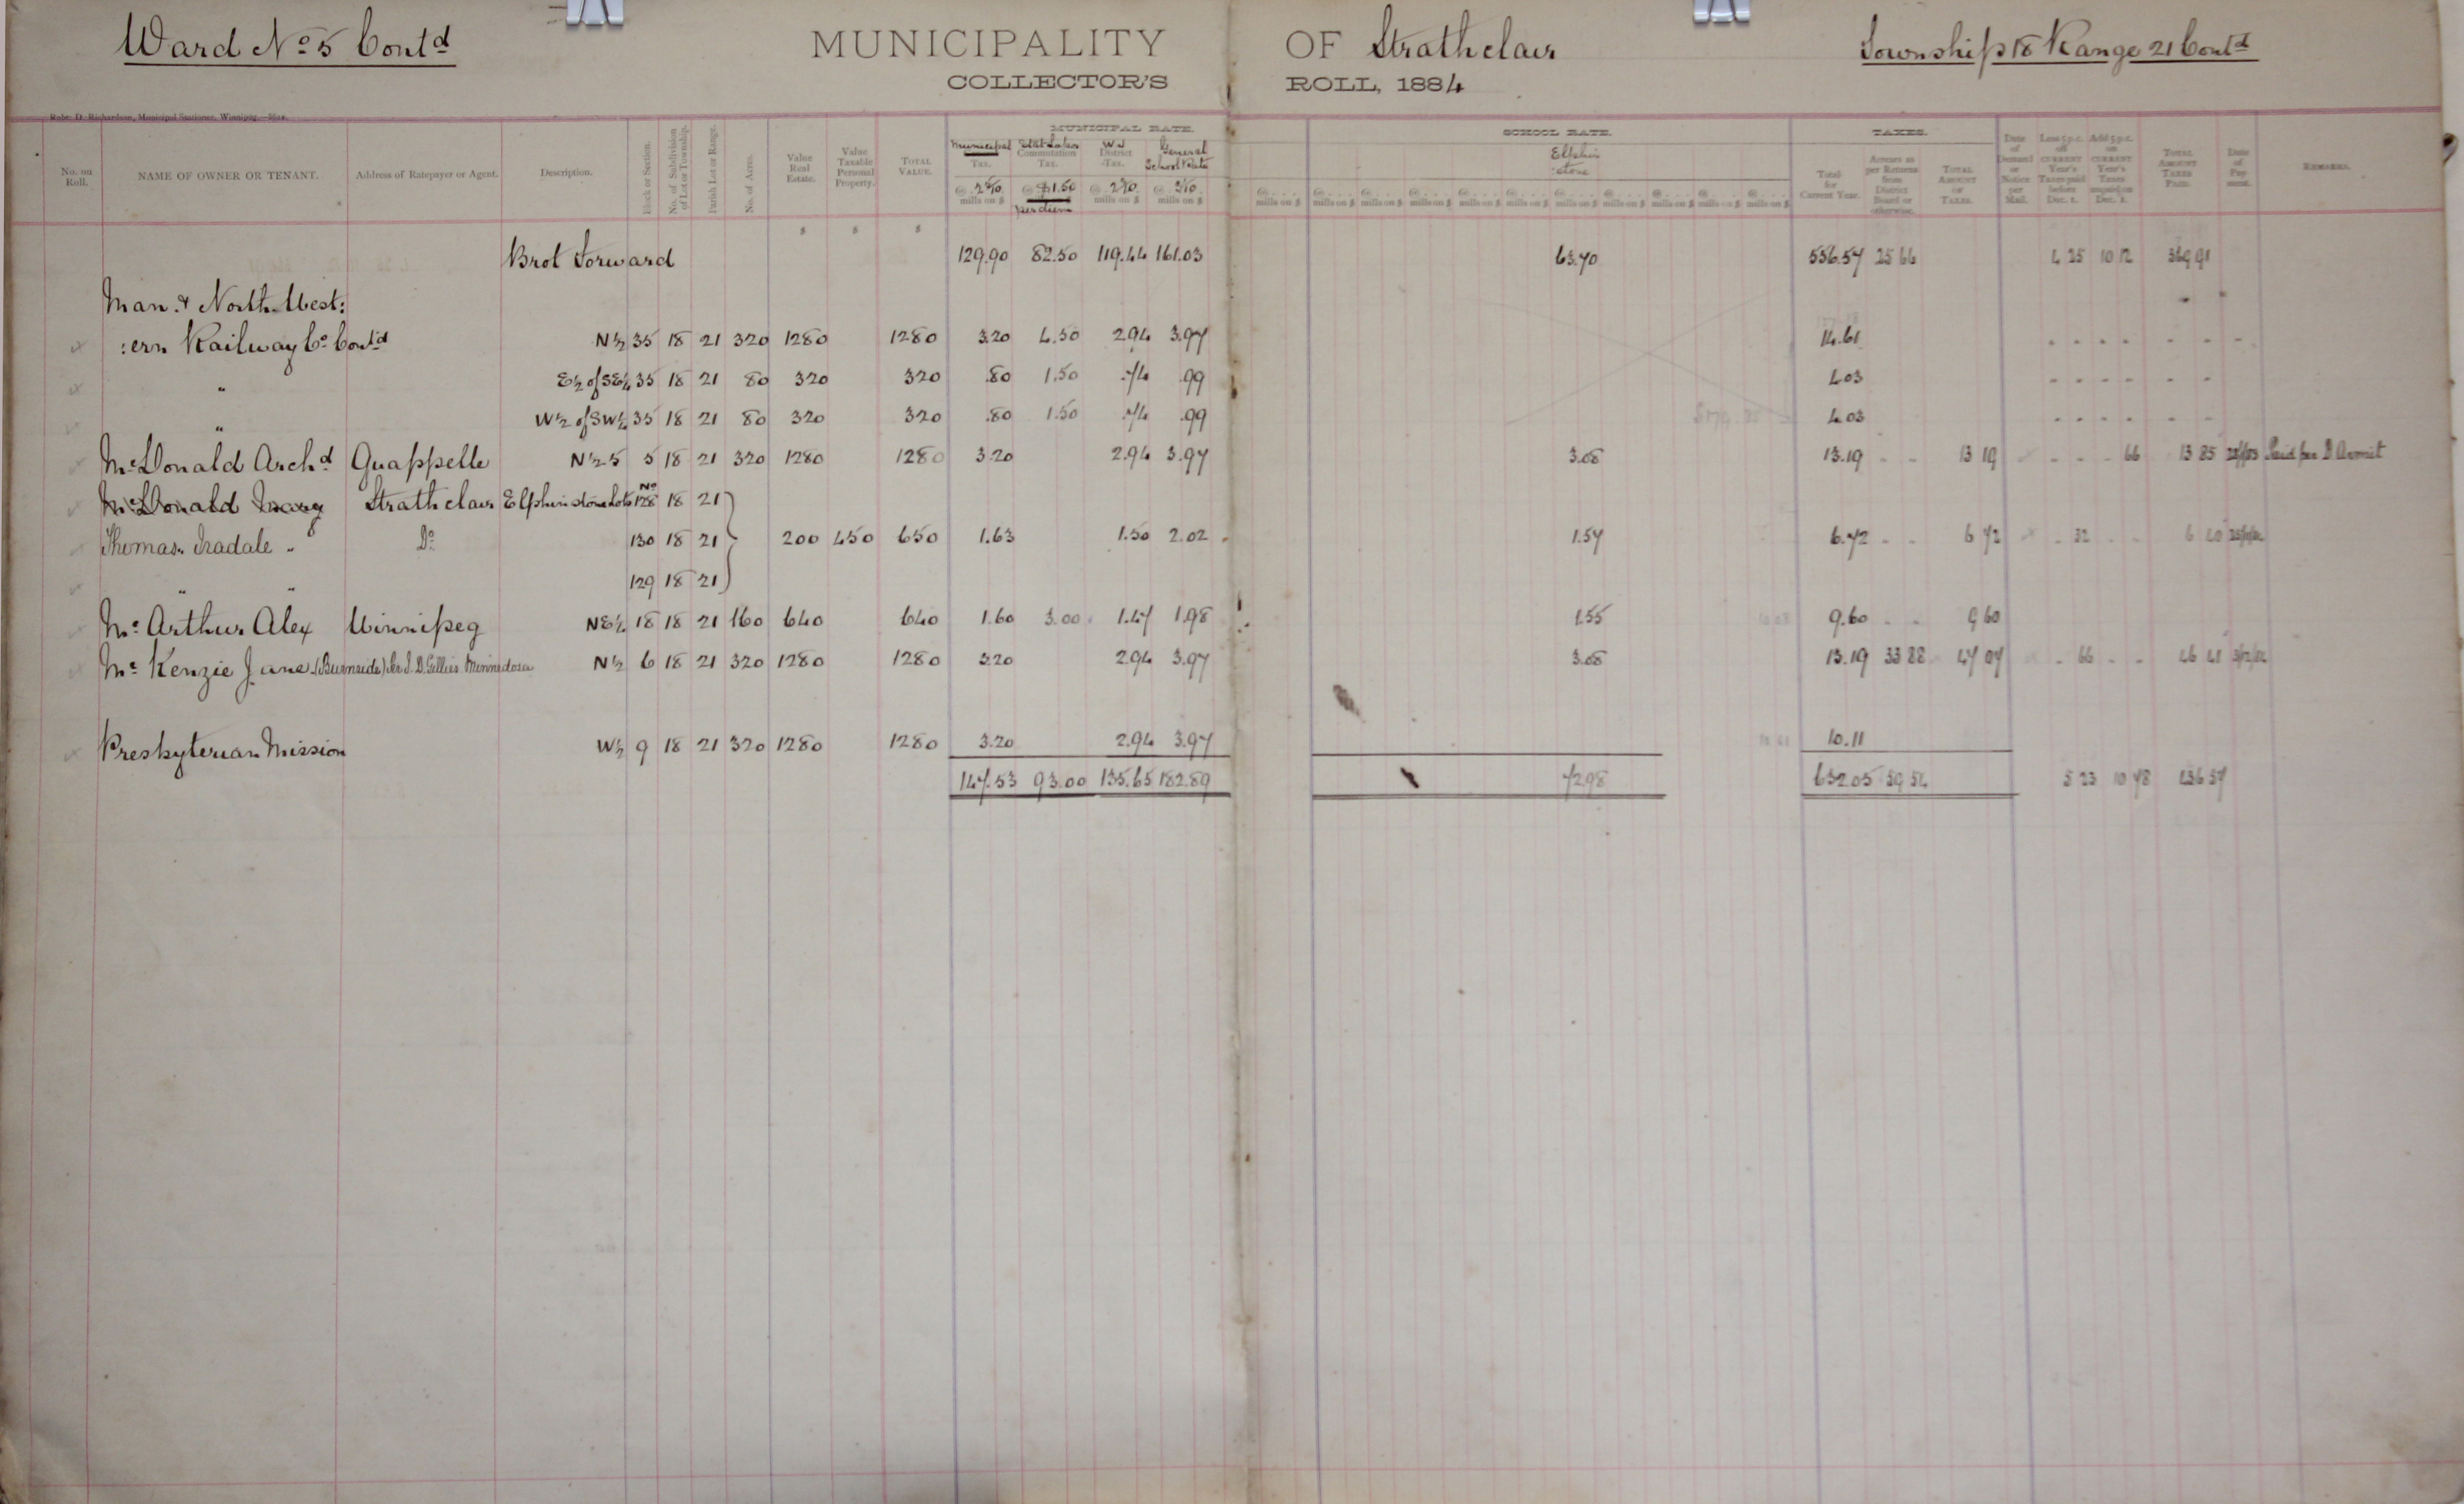 Ward No 5 Contd MUNICIPALITY OF Strathclair Township 18 Range 21 Contd
COLLECTOR'S ROLL, 1884
Robt. D. Richardson, Municipal Stationer, Winnipeg.—Man.
MUNICIPAL RATE. SCHOOL RATE. TAXES.
No. on Roll. NAME OF OWNER OR TENANT. Address of Ratepayer or Agent. Description. Block or Section. No. of Subdivision of Lot or Township. Parish Lot or Range. No. of Acres. Value Real Estate. Value Taxable Personal Property. TOTAL VALUE. Municipal Tax. Commutation Tax. District Tax. General School Rate Elphin :stone Total for Current Year. Arrears as per Returns from District Board or otherwise. TOTAL AMOUNT OF TAXES. Date of Demand or Notice per Mail. Less 5 p.c. off CURRENT Year's Taxes paid before Dec. 1. Add 5 p.c. on CURRENT Year's Taxes unpaid on Dec. 1. TOTAL AMOUNT TAXES PAID. Date of Payment. REMARKS.
mills on $ $1.50 per diem mills on $ mills on $
Brot Forward 129.90 82.50 119.44 161.03 63.70 556.57 25 66 4 25 10 12 369 91
Man. & North-West:
:ern Railway Co. Contd N½ 35 18 21 320 1280 1280 3.20 4.50 2.94 3.97 14.61
" E½ of SE¼ 35 18 21 80 320 320 .80 1.50 .74 .99 4.03
" W½ of SW¼ 35 18 21 80 320 320 .80 1.50 .74 .99 4.03
McDonald Archd Quappelle N½ 5 5 18 21 320 1280 1280 3.20 2.94 3.97 3.08 13.19 13 19 66 13 85 Paid per D Armit
McDonald Strathclair Elphinstone Lots No 128 18 21
Thomas. Iradale " Do 130 18 21 200 450 650 1.63 1.50 2.02 1.57 6.72 6 72 32 6 40
" " 129 18 21
Mc Arthur Alex Winnipeg NE¼ 18 18 21 160 640 640 1.60 3.00 1.47 1.98 1.55 9.60 9 60
Mc Kenzie Jane (Burnside) per J. D. Gillies Minnedosa N½ 6 18 21 320 1280 1280 3.20 2.94 3.97 3.08 13.19 33 88 47 07 66 46 41
Presbyterian Mission W½ 9 18 21 320 1280 1280 3.20 2.94 3.97 10.11
147.53 93.00 135.65 182.89 72.98 632.05 59 54 5 23 10 78 436 57